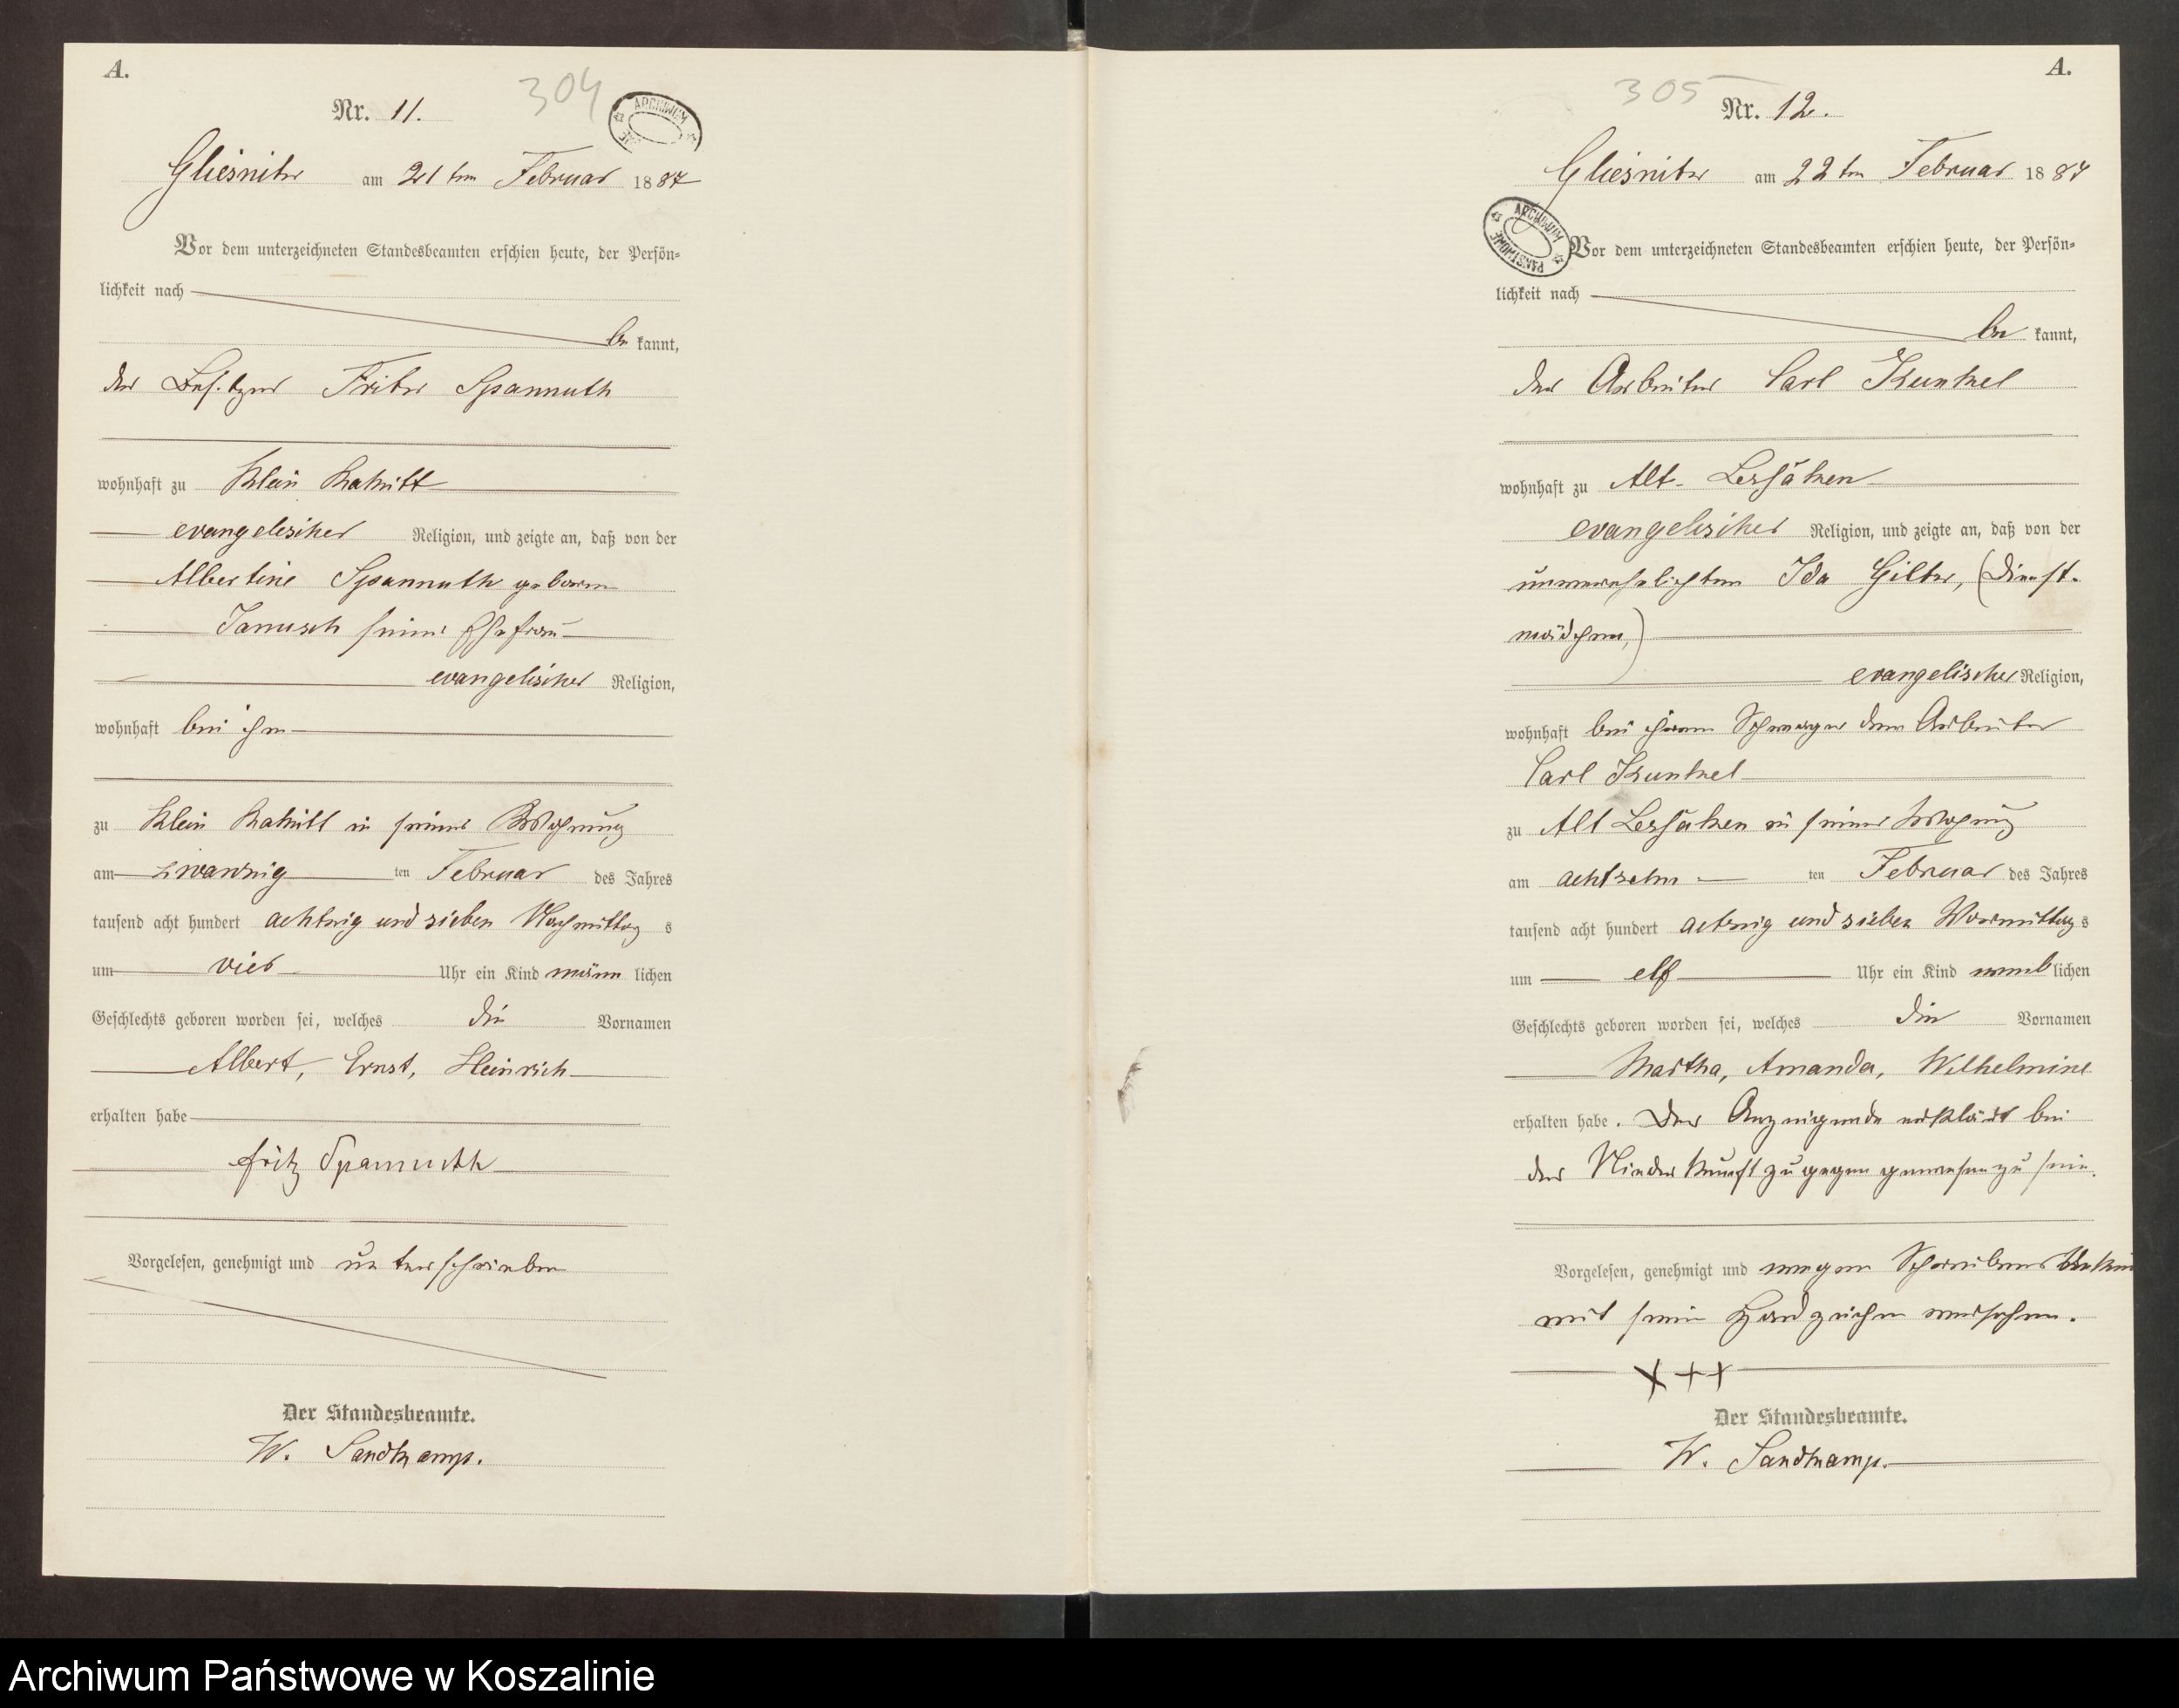 A.
Nr. 11.
304
ARCHIWUM
Gliesnitz am 21ten Februar 1887
Vor dem unterzeichneten Standesbeamten erschien heute, der Persön-
lichkeit nach
be kannt,
der Besitzer Fritz Spannuth
wohnhaft zu Klein Rakitt
evangelischer Religion, und zeigte an, daß von der
Albertine Spannuth geboren
Janusch seiner Ehefrau
evangelischer Religion,
wohnhaft bei ihm
zu Klein Rakitt in seiner Wohnung
am zwanzig ten Februar des Jahres
tausend acht hundert achtzig und sieben Nachmittag s
um vier Uhr ein Kind männ lichen
Geschlechts geboren worden sei, welches die Vornamen
Albert, Ernst, Heinrich
erhalten habe
Fritz Spannuth
Vorgelesen, genehmigt und unterschrieben
Der Standesbeamte.
W. Sandkamp.
A.
305
Nr. 12.
Gliesnitz am 22ten Februar 1887
ARCHIWUM PAŃSTWOWE
Vor dem unterzeichneten Standesbeamten erschien heute, der Persön-
lichkeit nach
be kannt,
der Arbeiter Carl Kunkel
wohnhaft zu Alt-
evangelischer Religion, und zeigte an, daß von der
unverehelichten Ida (Dienst-
mädchen,)
evangelischer Religion,
wohnhaft bei ihrem Schwager dem Arbeiter
Carl Kunkel
zu Alt in seiner Wohnung
am achtzehn ten Februar des Jahres
tausend acht hundert achtzig und sieben Vormittag s
um elf Uhr ein Kind weib lichen
Geschlechts geboren worden sei, welches die Vornamen
Martha, Amanda, Wilhelmine
erhalten habe. Der Anzeigende erklärt bei
der Niederkunft zugegen gewesen zu sein.
Vorgelesen, genehmigt und wegen Schreibens
mit sein Handzeichen versehen.
+++
Der Standesbeamte.
W. Sandkamp.
Archiwum Państwowe w Koszalinie